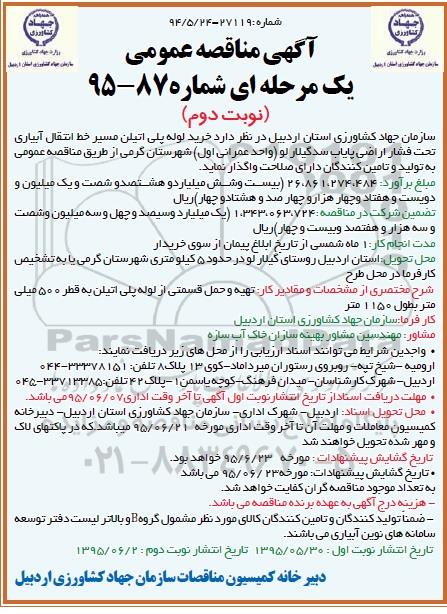 شماره:۲۷۱۱۹-۹۴/۵/۲۴
جهاد کشاورزی
وزارت جهاد کشاورزی
سازمان جهاد کشاورزی استان اردبیل
جهاد کشاورزی
وزارت جهاد کشاورزی
سازمان جهاد کشاورزی استان اردبیل
آگهی مناقصه عمومی
یک مرحله ای شماره ۸۷-۹۵
(نوبت دوم)
سازمان جهاد کشاورزی استان اردبیل در نظر دارد خرید لوله پلی اتیلن مسیر خط انتقال آبیاری
تحت فشار اراضی پایاب سدگیلارلو (واحد عمرانی اول) شهرستان گرمی از طریق مناقصه عمومی
به تولید و تامین کنندگان دارای صلاحت واگذار نماید.
مبلغ برآورد: ۲۶،۸۶۱،۲۷۴،۴۸۴ (بیست وشش میلیاردو هشتصدو شصت و یک میلیون و
دویست و هفتاد وچهار هزار و چهار صد و هشتادو چهار)ریال
تضمین شرکت در مناقصه: ۱،۳۴۳،۰۶۳،۷۲۴ (یک میلیارد وسیصد و چهل و سه میلیون وشصت
و سه هزار و هفتصد وبیست و چهار)ریال
مدت انجام کار: ۱ ماه شمسی از تاریخ ابلاغ پیمان از سوی خریدار
محل تحویل: استان اردبیل روستای گیلار لو در حدود ۵ کیلو متری شهرستان گرمی یا به تشخیص
کارفرما در محل طرح
شرح مختصری از مشخصات و مقادیر کار: تهیه و حمل قسمتی از لوله پلی اتیلن به قطر ۵۰۰ میلی
متر بطول ۱۱۵۰ متر
کار فرما:سازمان جهاد کشاورزی استان اردبیل
مشاور: مهندسین مشاور بهینه سازان خاک آب سازه
• واجدین شرایط می توانند اسناد ارزیابی را از محل های زیر دریافت نمایند:
ارومیه -شیخ تپه- روبروی رستوران میرداماد-کوی ۱۳ پلاک۸ تلفن:۳۳۳۷۸۱۵۱-۰۴۴
اردبیل-شهرک کارشناسان-میدان فرهنگ-کوچه یاسمن۱-پلاک ۴۲ تلفن:۳۳۷۱۳۳۸۵-۰۴۵
• مهلت دریافت اسناد از تاریخ انتشار نوبت اول آگهی تا آخر وقت اداری ۹۵/۰۶/۰۷می باشد.
• محل تحویل اسناد: اردبیل- شهرک اداری- سازمان جهاد کشاورزی استان اردبیل- دبیرخانه
کمیسیون معاملات و مهلت آن تا آخر وقت اداری مورخه ۹۵/۰۶/۲۱ میباشد که در پاکتهای لاک
و مهر شده تحویل خواهند شد
تاریخ گشایش پیشنهادات : مورخه ۹۵/۶/۲۳ خواهد بود.
• تاریخ گشایش پیشنهادات: مورخه ۹۵/۰۶/۲۳ می باشد
به تعداد موجود مناقصه گران کفایت خواهد شد.
- هزینه درج آگهی به عهده برنده مناقصه می باشد.
- ضمنا تولید کنندگان و تامین کنندگان کالای مورد نظر مشمول گروه B و بالاتر لیست دفتر توسعه
سامانه های نوین آبیاری می باشند.
تاریخ انتشار نوبت اول : ۱۳۹۵/۰۵/۳۰ تاریخ انتشار نوبت دوم : ۱۳۹۵/۰۶/۲
دبیر خانه کمیسیون مناقصات سازمان جهاد کشاورزی اردبیل